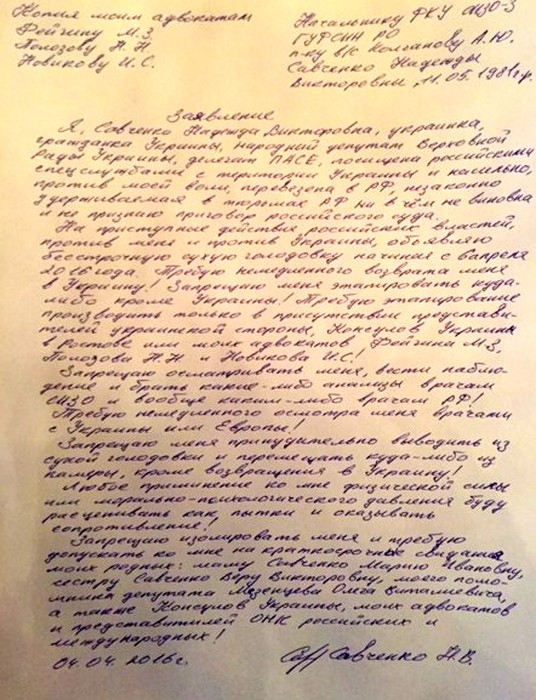 Копия моим адвокатам
Фейгину М.З.
Полозову Н.Н.
Новикову И.С.
Начальнику ФКУ СИЗО-3
ГУФСИН РО
п-ку в/с Колганову А.Ю.
Савченко Надежды
Викторовны, 11.05.1981г.р.
Заявление
Я, Савченко Надежда Викторовна, украинка,
гражданка Украины, Народный депутат Верховной
Рады Украины, делегат ПАСЕ, похищена российскими
спецслужбами с територии Украины и насильно,
против моей воли, перевезена в РФ, незаконно
удерживаемая в тюрьмах РФ ни в чём не виновна
и не признаю приговор российского суда.
На приступные действия российских властей,
против меня и против Украины, объявляю
бессрочную сухую голодовку начиная с 6 апреля
2016 года. Требую немедленного возврата меня
в Украину! Запрещаю меня этапировать куда-
либо кроме Украины! Требую этапирование
производить только в присутствии представи-
телей украинской стороны, Консулов Украины
в Ростове или моих адвокатов Фейгина М.З,
Полозова Н.Н и Новикова И.С!
Запрещаю осматривать меня, вести наблю-
дение и брать какие-либо анализы врачам
СИЗО и вообще каким-либо врачам РФ!
Требую немедленного осмотра меня врачами
с Украины или Европы!
Запрещаю меня принудительно выводить из
сухой голодовки и перемещать куда-либо из
камеры, кроме возвращения в Украину!
Любое приминение ко мне физической силы
или морально-психологического давления буду
расценивать как пытки и оказывать
сопротивление!
Запрещаю изолировать меня и требую
допускать ко мне на краткосрочные свидания
моих родных: маму Савченко Марию Ивановну,
сестру Савченко Веру Викторовну, моего помо-
шника депутата Мезенцева Олега Виталиевича,
а также Консулов Украины, моих адвокатов
и представителей ОНК российских и
международных!
04.04.2016г. Савченко Н.В.